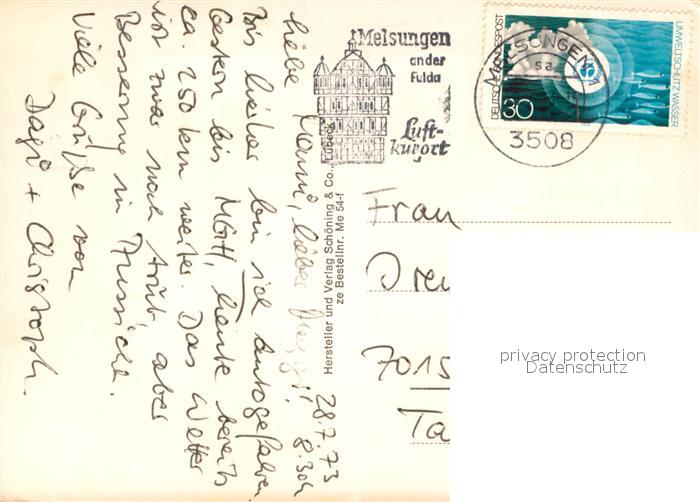 28.7.73
8.30h
Liebe Mami, lieber
Bis hierher bin ich autogefahren
Gestern bis heute bereits
ca. 250 km weiter. Das Wetter
ist zwar noch trüb aber
Besserung in Aussicht.
Viele Grüße von
Dagi + Christoph.
Hersteller und Verlag Schöning & Co., Lübeck
ze Bestellnr. Me 54-f
Melsungen
an der
Fulda
Luft-
kurort
MELSUNGEN 1
sa
3508
DEUTSCHE BUNDESPOST
30
UMWELTSCHUTZ WASSER
Frau
Dreu
7015
Ta
privacy protection
Datenschutz